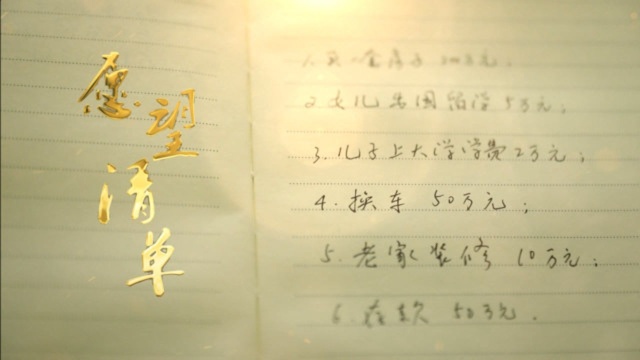 愿望清单
1. 买一套房子 万元;
2. 女儿出国留学 5万元;
3. 儿子上大学学费 2万元;
4. 换车 50万元;
5. 老家装修 10万元;
6. 存款 50万元.